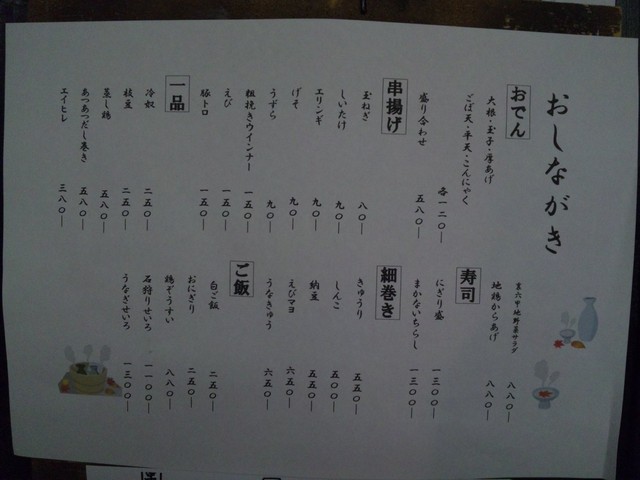 おしながき
おでん
大根・玉子・厚あげ
ごぼ天・平天・こんにゃく 各一二〇―
盛り合わせ 五八〇―
串揚げ
玉ねぎ 八〇―
しいたけ 九〇―
エリンギ 九〇―
げそ 九〇―
うずら 九〇―
粗挽きウインナー 一五〇―
えび 一五〇―
豚トロ 一五〇―
一品
冷奴 二五〇―
枝豆 二五〇―
蒸し鶏 五八〇―
あつあつだし巻き 五八〇―
エイヒレ 三八〇―
地野菜サラダ 八八〇―
地鶏からあげ 八八〇―
寿司
にぎり盛 一三〇〇―
まかないちらし 一三〇〇―
細巻き
きゅうり 五五〇―
しんこ 五五〇―
納豆 五五〇―
えびマヨ 六五〇―
うなきゅう 六五〇―
ご飯
白ご飯 二五〇―
おにぎり 二五〇―
鶏ぞうすい 八八〇―
石狩りせいろ 一一〇〇―
うなぎせいろ 一三〇〇―